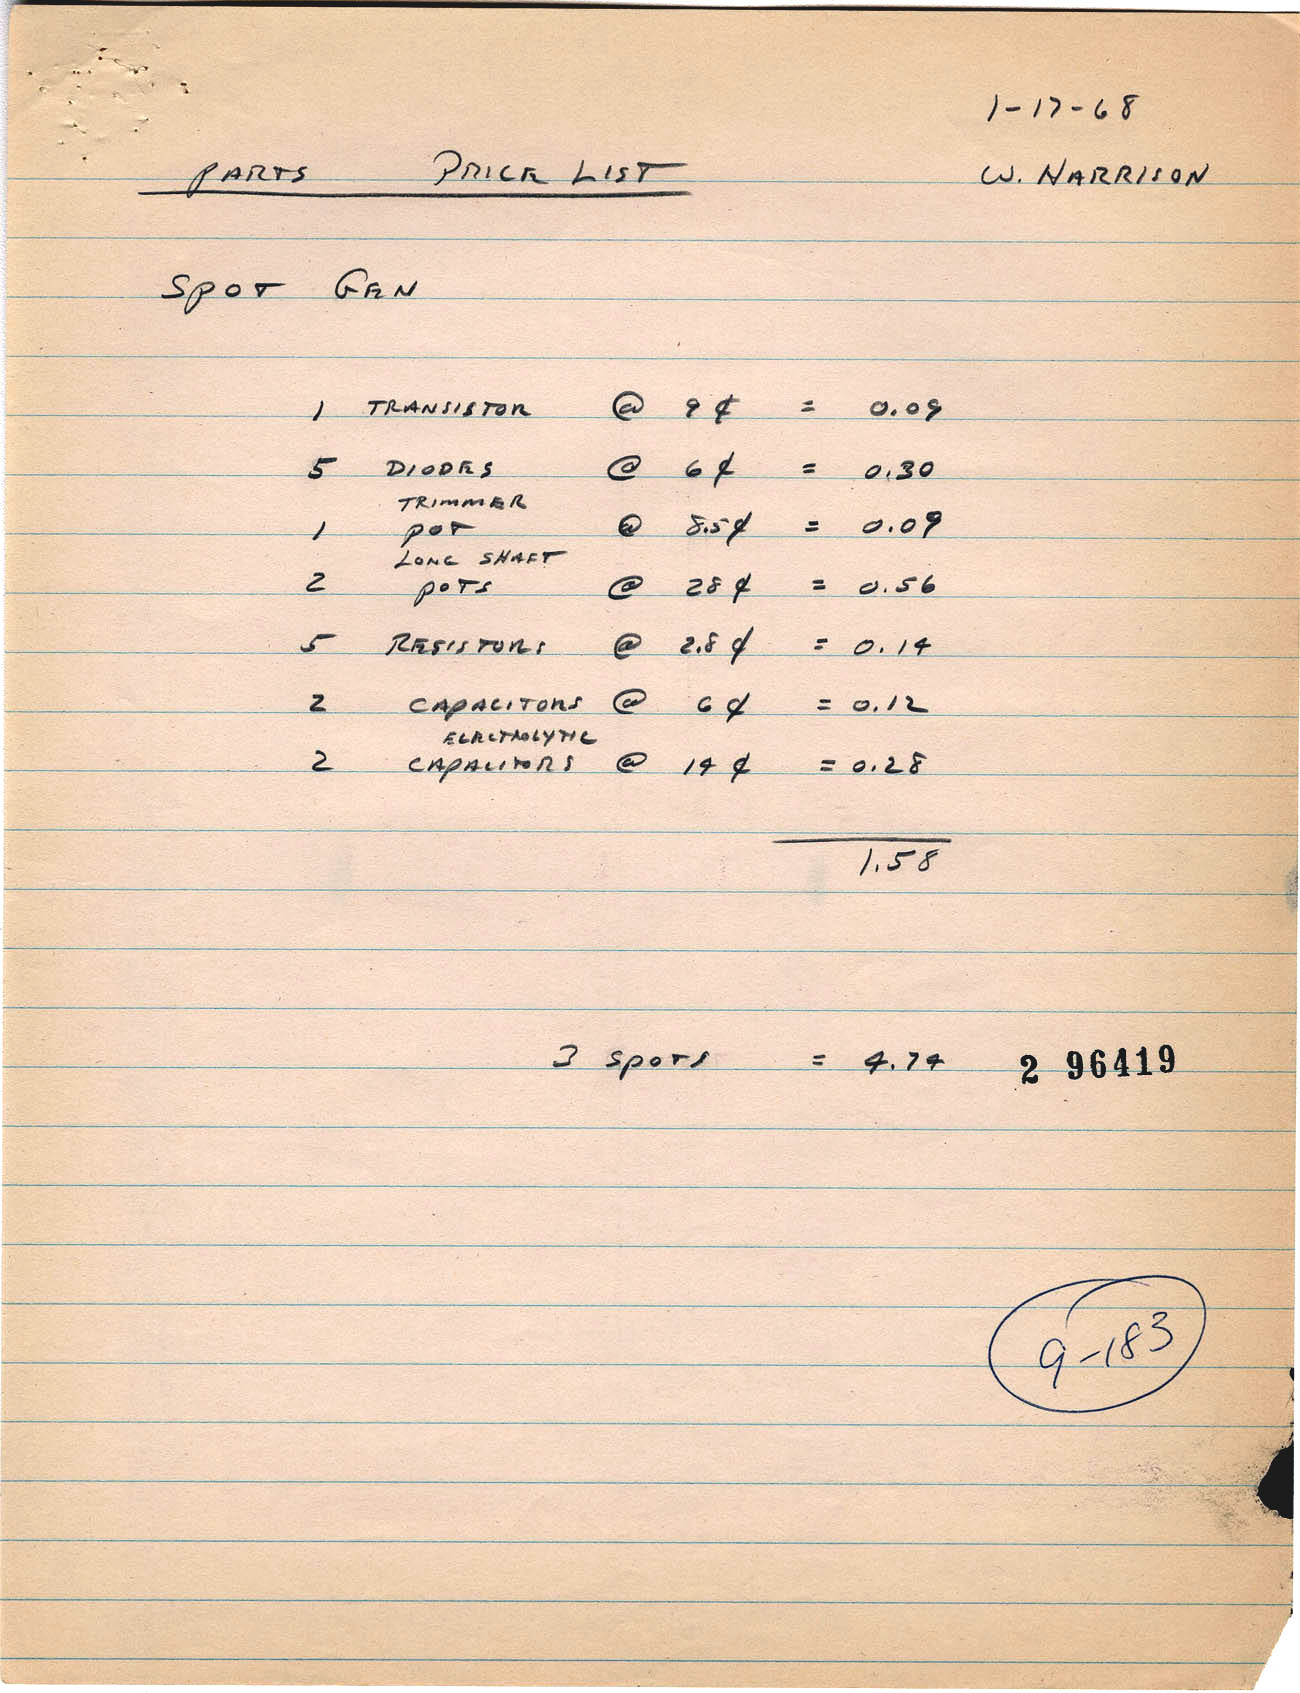 1-17-68
PARTS PRICE LIST W. HARRISON
SPOT GEN
1 TRANSISTOR @ 9¢ = 0.09
5 DIODES @ 6¢ = 0.30
TRIMMER
1 POT @ 8.5¢ = 0.09
LONG SHAFT
2 POTS @ 28¢ = 0.56
5 RESISTORS @ 2.8¢ = 0.14
2 CAPACITORS @ 6¢ = 0.12
ELECTROLYTIC
2 CAPACITORS @ 14¢ = 0.28
1.58
3 SPOTS = 4.74 2 96419
9-183